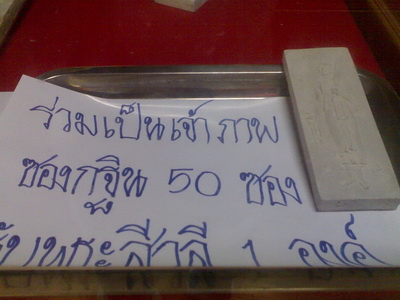 ร่วมเป็นเจ้าภาพ
ซองกฐิน 50 ซอง
รับพระสีวลี 1 องค์